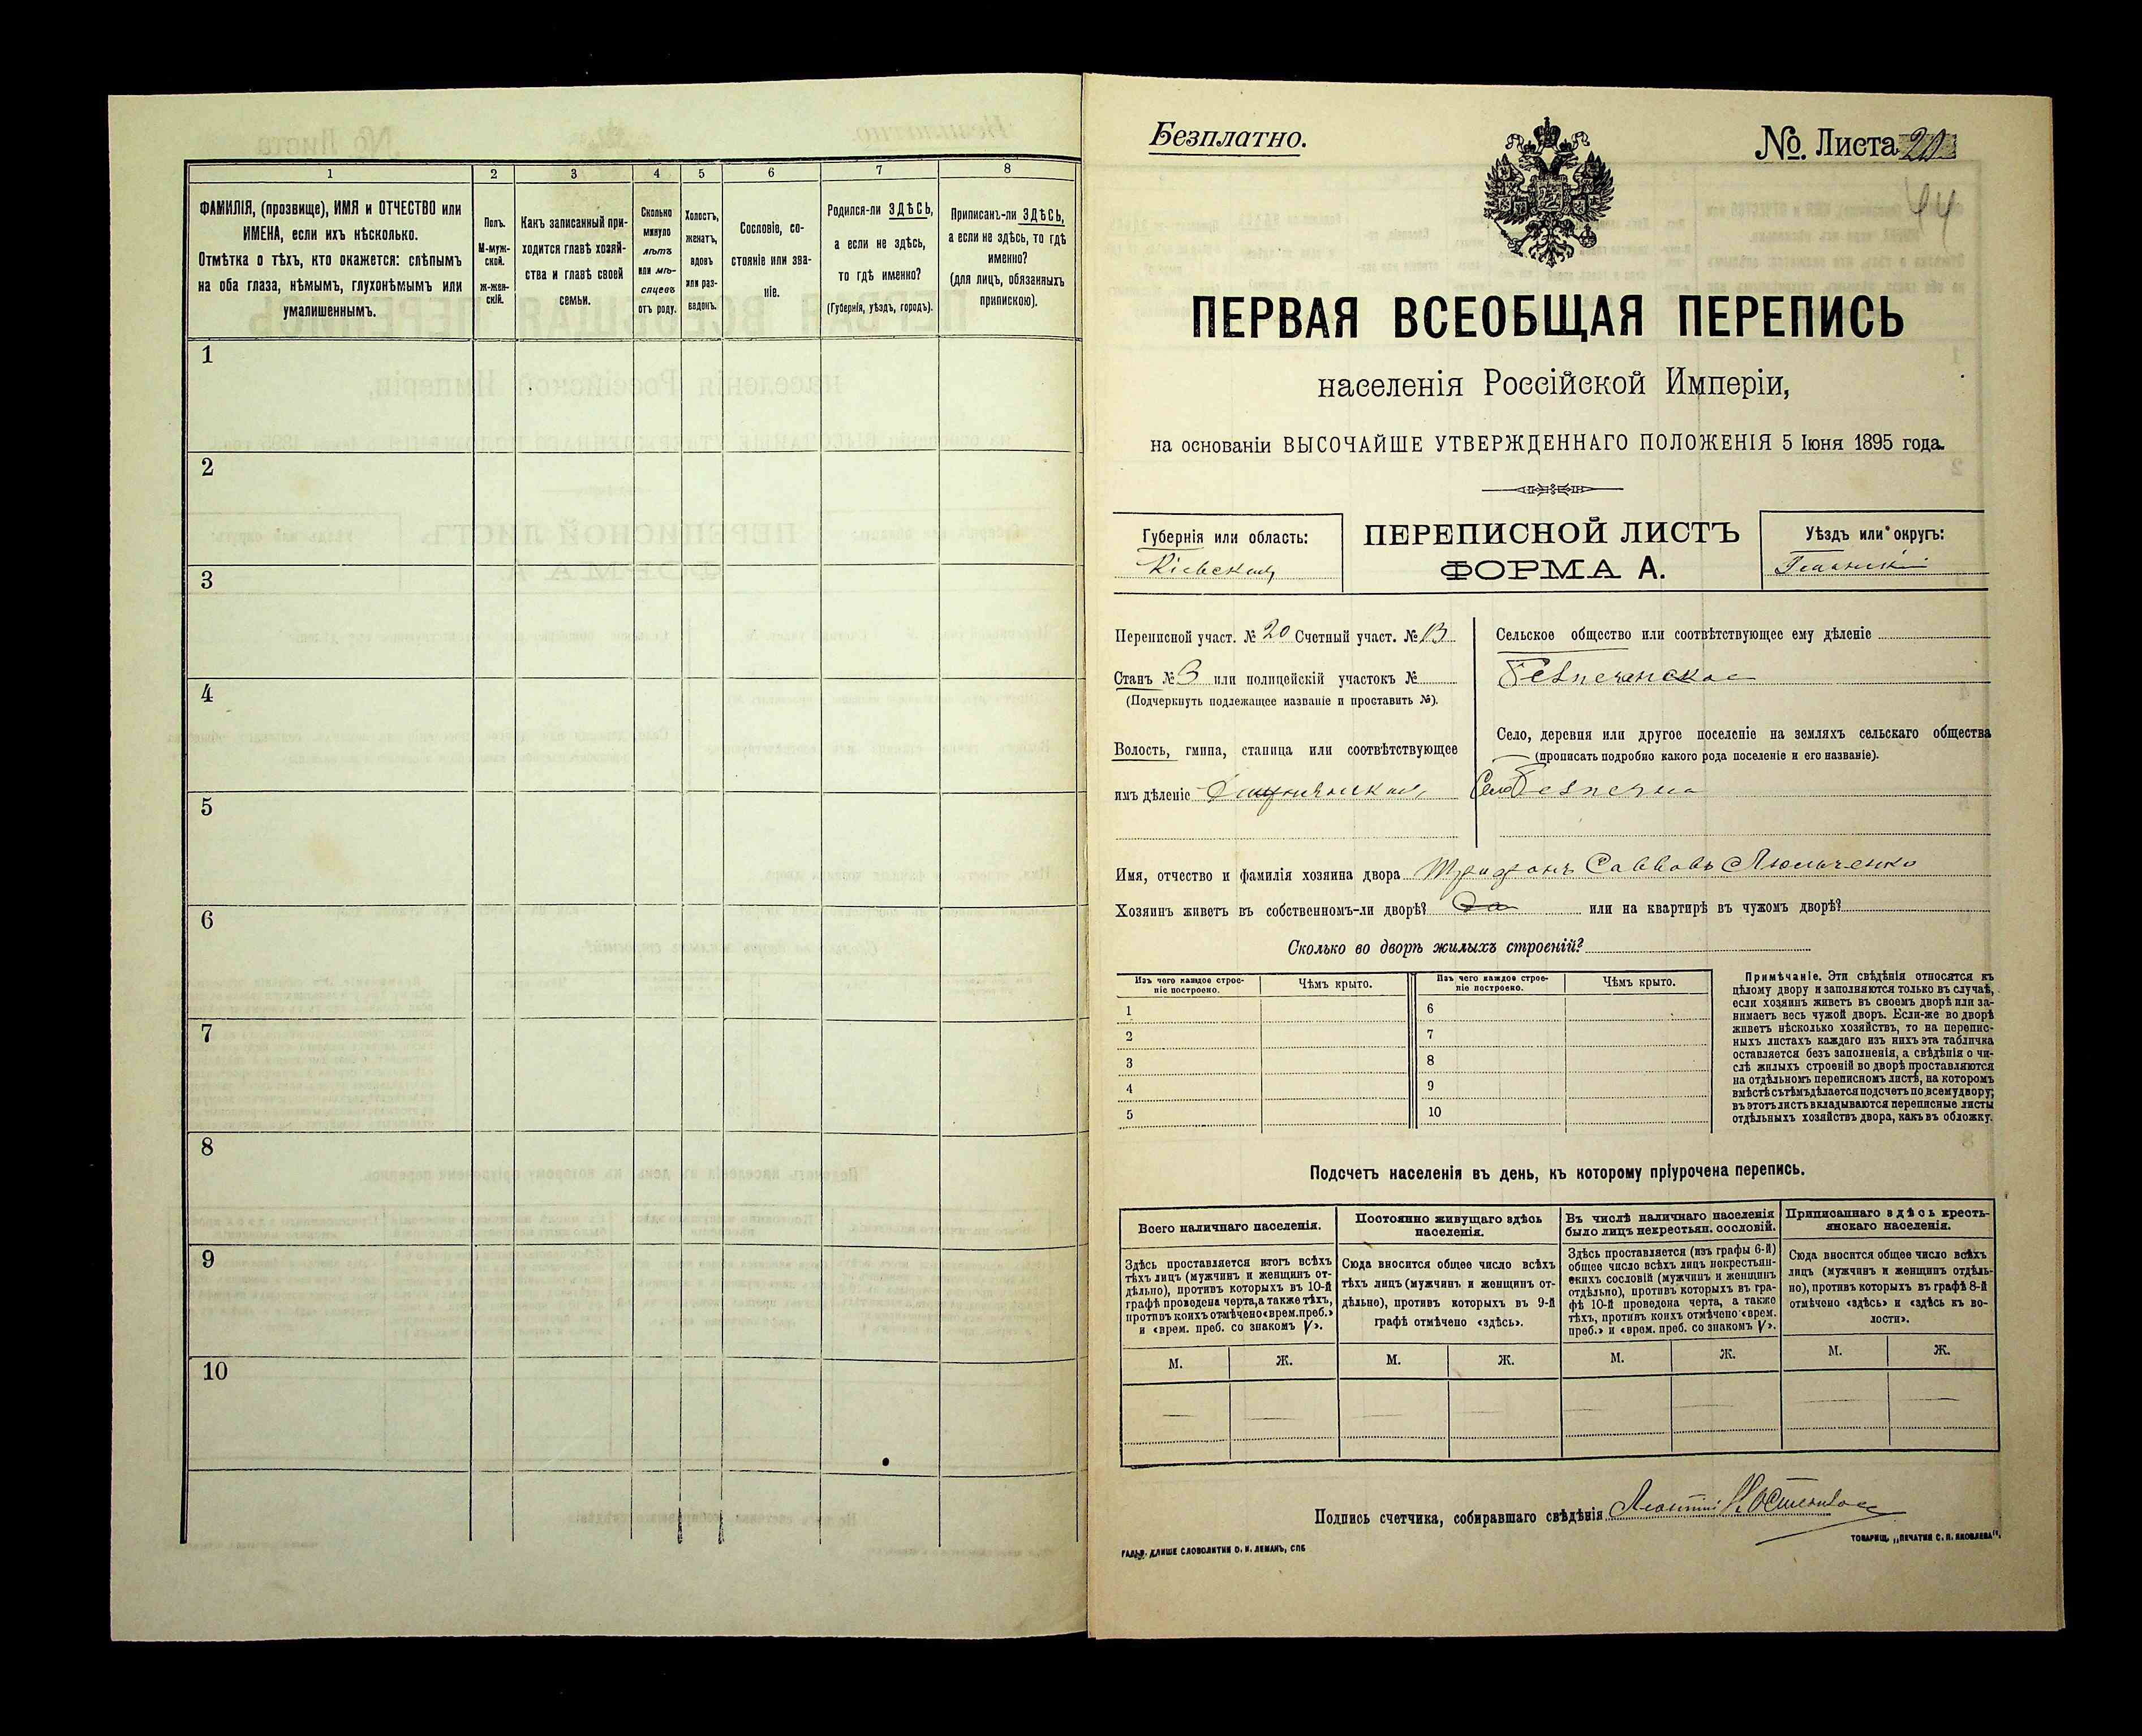 1 2 3 4 5 6 7 8
ФАМИЛІЯ, (прозвище), ИМЯ и ОТЧЕСТВО или
ИМЕНА, если ихъ нѣсколько.
Отмѣтка о тѣхъ, кто окажется: слѣпымъ
на оба глаза, нѣмымъ, глухонѣмымъ или
умалишеннымъ.
Полъ.
М-муж-
ской.
ж-жен-
скій.
Какъ записанный при-
ходится главѣ хозяй-
ства и главѣ своей
семьи.
Сколько
минуло
лѣтъ
или мѣ-
сяцевъ
отъ роду.
Холостъ,
женатъ,
вдовъ
или раз-
веденъ.
Сословіе, со-
стояніе или зва-
ніе.
Родился-ли ЗДѢСЬ,
а если не здѣсь,
то гдѣ именно?
(Губернія, уѣздъ, городъ).
Приписанъ-ли ЗДѢСЬ,
а если не здѣсь, то гдѣ
именно?
(для лицъ, обязанныхъ
припискою).
1
2
3
4
5
6
7
8
9
10
Безплатно.
№. Листа 20
44
ПЕРВАЯ ВСЕОБЩАЯ ПЕРЕПИСЬ
населенія Россійской Имперіи,
на основаніи ВЫСОЧАЙШЕ УТВЕРЖДЕННАГО ПОЛОЖЕНІЯ 5 Іюня 1895 года.
Губернія или область:
Кіевская
ПЕРЕПИСНОЙ ЛИСТЪ
ФОРМА А.
Уѣздъ или округъ:
Переписной участ. № 20 Счетный участ. № 13
Станъ № 3 или полицейскій участокъ №
(Подчеркнуть подлежащее названіе и проставить №).
Волость, гмина, станица или соотвѣтствующее
имъ дѣленіе
Сельское общество или соотвѣтствующее ему дѣленіе
Безпечанское
Село, деревня или другое поселеніе на земляхъ сельскаго общества
(прописать подробно какого рода поселеніе и его названіе).
Село Безпечна
Имя, отчество и фамилія хозяина двора Трифонъ Савовъ Люльченко
Хозяинъ живетъ въ собственномъ-ли дворѣ? Да или на квартирѣ въ чужомъ дворѣ?
Сколько во дворѣ жилыхъ строеній?
Изъ чего каждое строе-
ніе построено.
Чѣмъ крыто.
Изъ чего каждое строе-
ніе построено.
Чѣмъ крыто.
1 6
2 7
3 8
4 9
5 10
Примѣчаніе. Эти свѣдѣнія относятся къ
цѣлому двору и заполняются только въ случаѣ,
если хозяинъ живетъ въ своемъ дворѣ или за-
нимаетъ весь чужой дворъ. Если-же во дворѣ
живетъ нѣсколько хозяйствъ, то на перепис-
ныхъ листахъ каждаго изъ нихъ эта табличка
оставляется безъ заполненія, а свѣдѣнія о чи-
слѣ жилыхъ строеній во дворѣ проставляются
на отдѣльномъ переписномъ листѣ, на которомъ
вмѣстѣ съ тѣмъ дѣлается подсчетъ по всему двору;
въ этотъ листъ вкладываются переписные листы
отдѣльныхъ хозяйствъ двора, какъ въ обложку.
Подсчетъ населенія въ день, къ которому пріурочена перепись.
Всего наличнаго населенія.
Постоянно живущаго здѣсь
населенія.
Въ числѣ наличнаго населенія
было лицъ некрестьян. сословій.
Приписаннаго здѣсь кресть-
янскаго населенія.
Здѣсь проставляется итогъ всѣхъ
тѣхъ лицъ (мужчинъ и женщинъ от-
дѣльно), противъ которыхъ въ 10-й
графѣ проведена черта, а также тѣхъ,
противъ коихъ отмѣчено «врем. преб.»
и «врем. преб. со знакомъ V».
Сюда вносится общее число всѣхъ
тѣхъ лицъ (мужчинъ и женщинъ от-
дѣльно), противъ которыхъ въ 9-й
графѣ отмѣчено «здѣсь».
Здѣсь проставляется (изъ графы 6-й)
общее число всѣхъ лицъ некрестьян-
скихъ сословій (мужчинъ и женщинъ
отдѣльно), противъ которыхъ въ гра-
фѣ 10-й проведена черта, а также
тѣхъ, противъ коихъ отмѣчено «врем.
преб.» и «врем. преб. со знакомъ V».
Сюда вносится общее число всѣхъ
лицъ (мужчинъ и женщинъ отдѣль-
но), противъ которыхъ въ графѣ 8-й
отмѣчено «здѣсь» и «здѣсь къ во-
лости».
М. Ж. М. Ж. М. Ж. М. Ж.
Подпись счетчика, собиравшаго свѣдѣнія Леонтій
ГАЛЬВ. КЛИШЕ СЛОВОЛИТНИ О. И. ЛЕМАНЪ, СПБ
ТОВАРИЩ. „ПЕЧАТНЯ С. П. ЯКОВЛЕВА“.